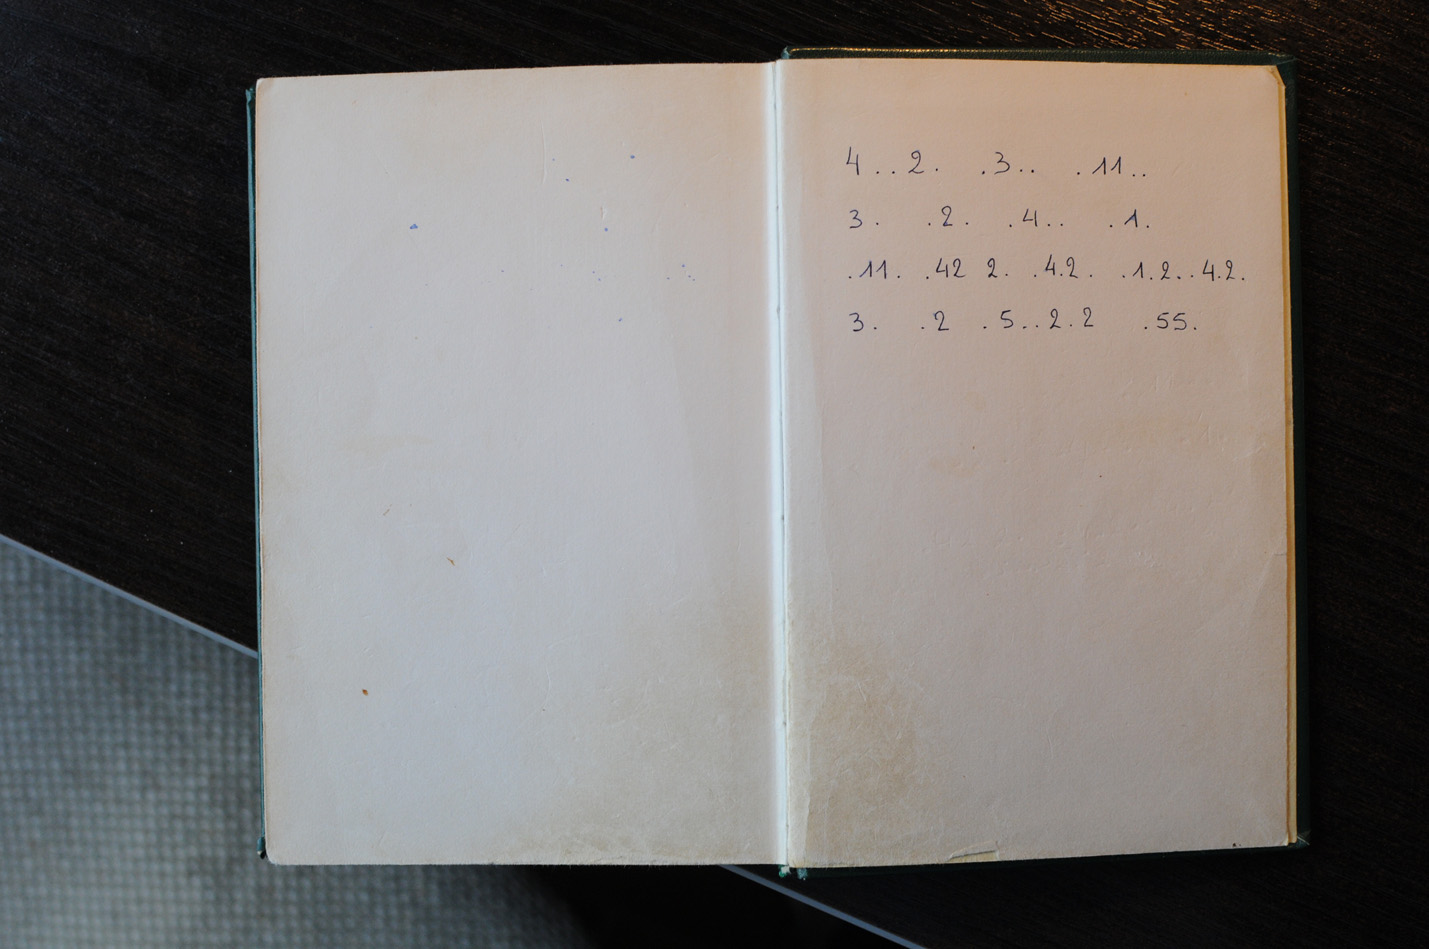 4 . . 2 . . 3 . . . 11 . .
3 . . 2 . . 4 . . . 1 .
. 11 . . 42 2 . . 4.2 . . 1.2 . . 4.2 .
3 . . 2 . 5 . . 2.2 . 55 .